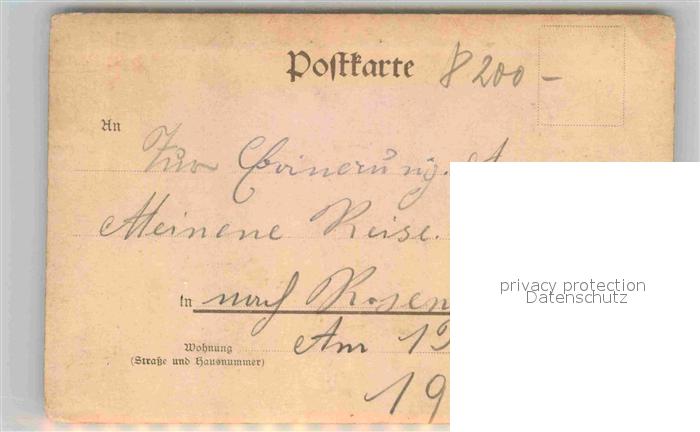 Postkarte 8200 –
An
Zur Erinerung. A
Meinene Reise.
in nach Rosen
Wohnung Am 19
(Straße und Hausnummer)
19
privacy protection
Datenschutz